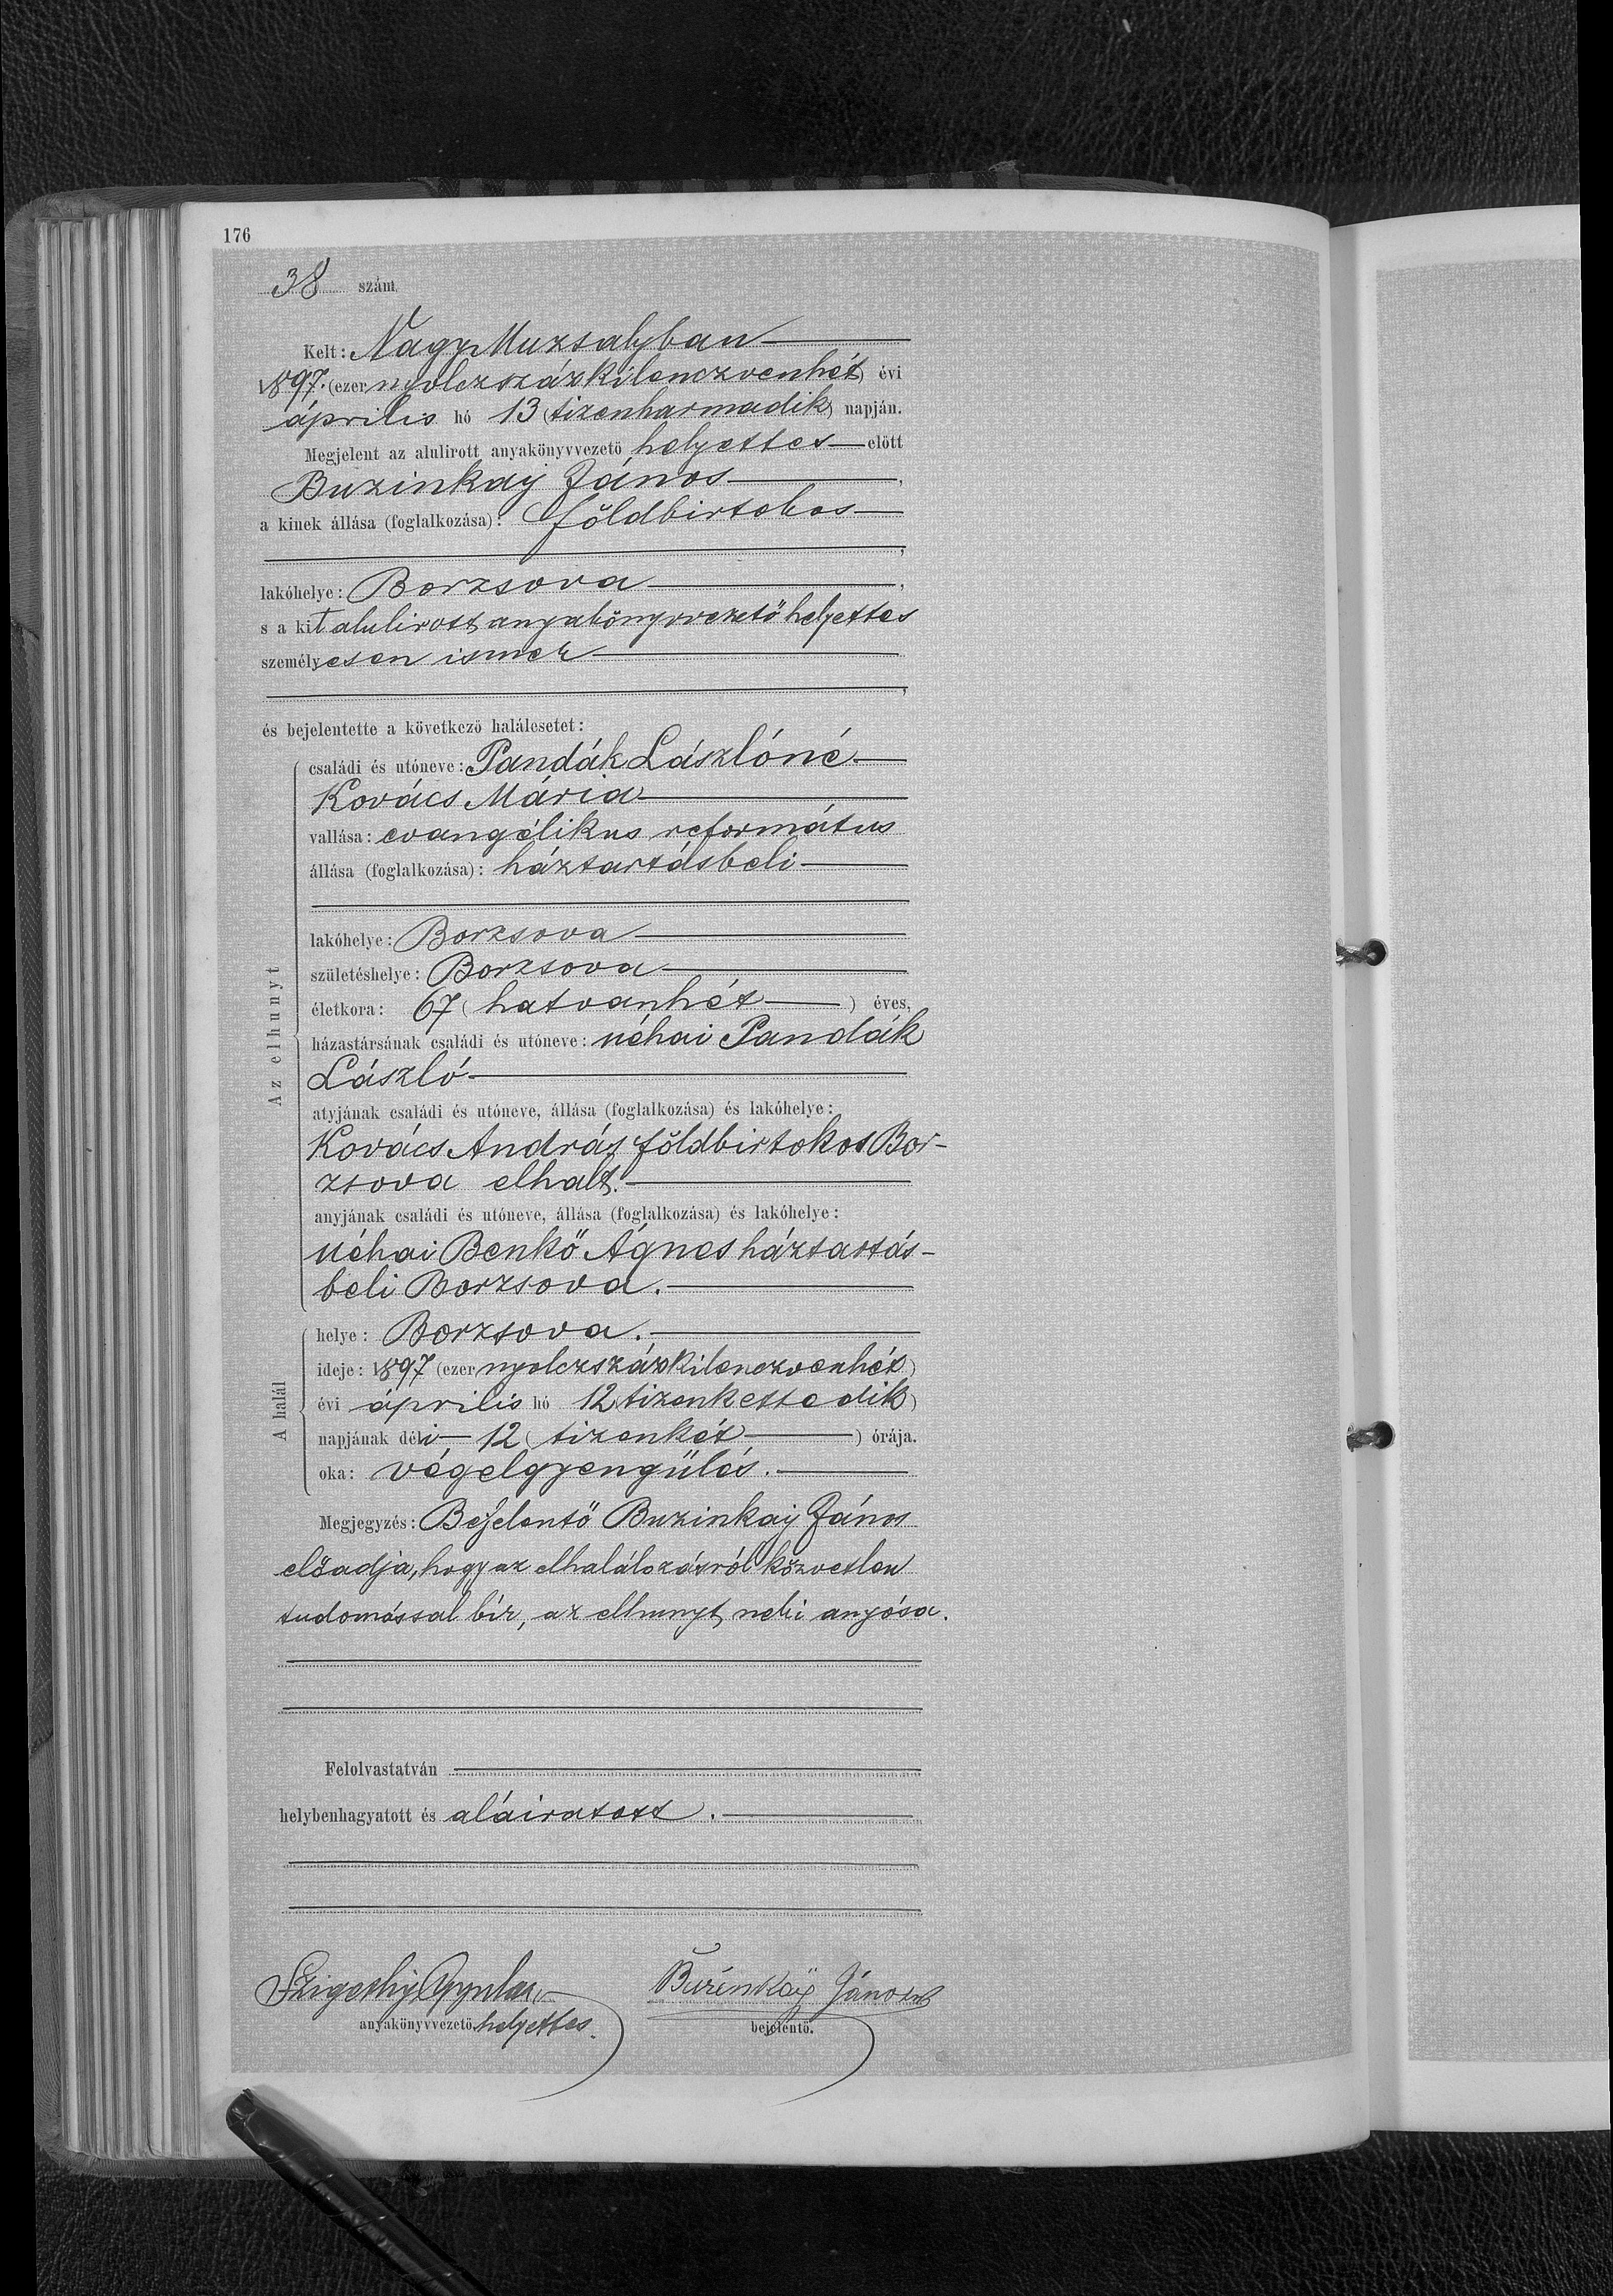 176
38 szám.
Kelt: Nagy Muzsalyban
1897. (ezer nyolczszázkilenczvenhét) évi
április hó 13 (tizenharmadik) napján.
Megjelent az alulirott anyakönyvvezető helyettes előtt
Buzinkay János,
a kinek állása (foglalkozása): földbirtokos
,
lakóhelye: Borzsova,
s a kit alulirott anyakönyvvezető helyettes
személyesen ismer
,
és bejelentette a következő halálesetet:
Az elhunyt
családi és utóneve: Pandák Lászlóné
Kovács Mária
vallása: evangélikus református
állása (foglalkozása): háztartásbeli
lakóhelye: Borzsova
születéshelye: Borzsova
életkora: 67 (hatvanhét) éves,
házastársának családi és utóneve: néhai Pandák
László
atyjának családi és utóneve, állása (foglalkozása) és lakóhelye:
Kovács András földbirtokos Bor-
zsova elhalt.
anyjának családi és utóneve, állása (foglalkozása) és lakóhelye:
néhai Benkő Ágnes háztartás-
beli Borzsova.
A halál
helye: Borzsova.
ideje: 1897 (ezer nyolczszázkilenczvenhét)
évi április hó 12 (tizenkettedik)
napjának déli 12 (tizenkét) órája.
oka: végelgyengülés.
Megjegyzés: Bejelentő Buzinkay János
előadja, hogy az elhalálozásról közvetlen
tudomással bír, az elhunyt neki anyósa.
Felolvastatván
helybenhagyatott és aláiratott.
Szigethy Gyula Buzinkay János
anyakönyvvezető. helyettes. bejelentő.